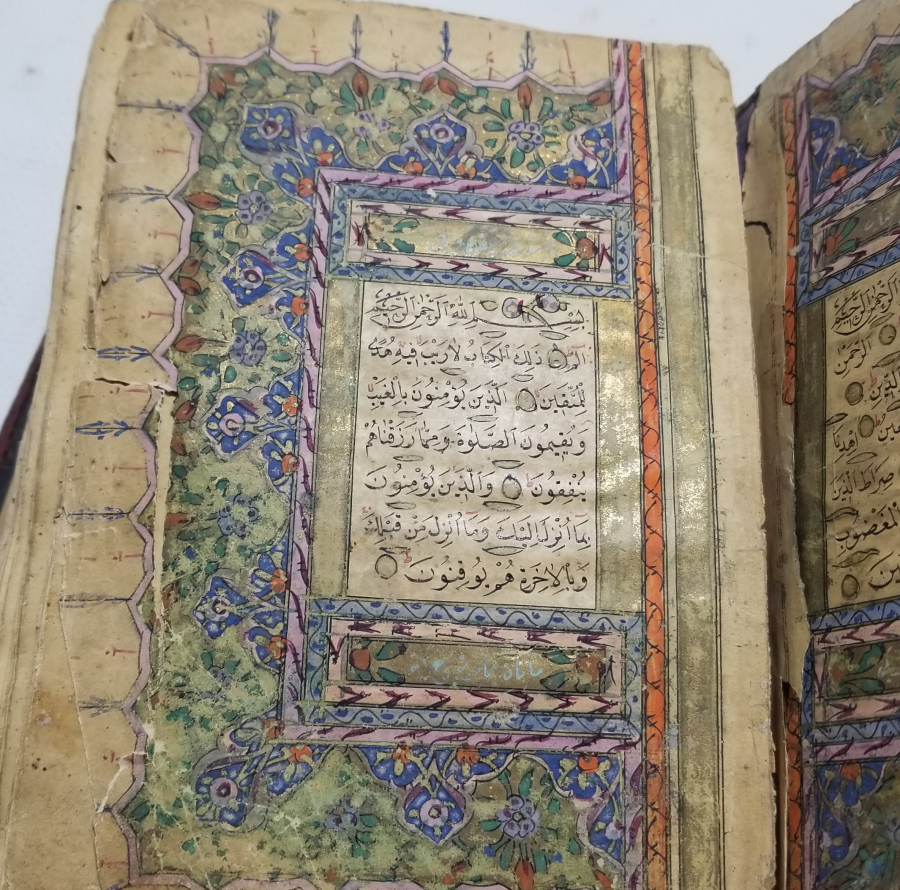 بِسْمِ اللهِ الرَّحْمٰنِ الرَّحِيمِ
الم ذٰلِكَ الْكِتَابُ لَا رَيْبَ فِيهِ هُدًى
لِلْمُتَّقِينَ الَّذِينَ يُؤْمِنُونَ بِالْغَيْبِ
وَيُقِيمُونَ الصَّلٰوةَ وَمِمَّا رَزَقْنَاهُمْ
يُنْفِقُونَ وَالَّذِينَ يُؤْمِنُونَ
بِمَا اُنْزِلَ اِلَيْكَ وَمَا اُنْزِلَ مِنْ قَبْلِكَ
وَبِالْاٰخِرَةِ هُمْ يُوقِنُونَ
الرَّحْمٰنِ الرَّحِيمِ
الرَّحْمٰنِ
اِهْدِنَا
صِرَاطَ الَّذِينَ
الْمَغْضُوبِ